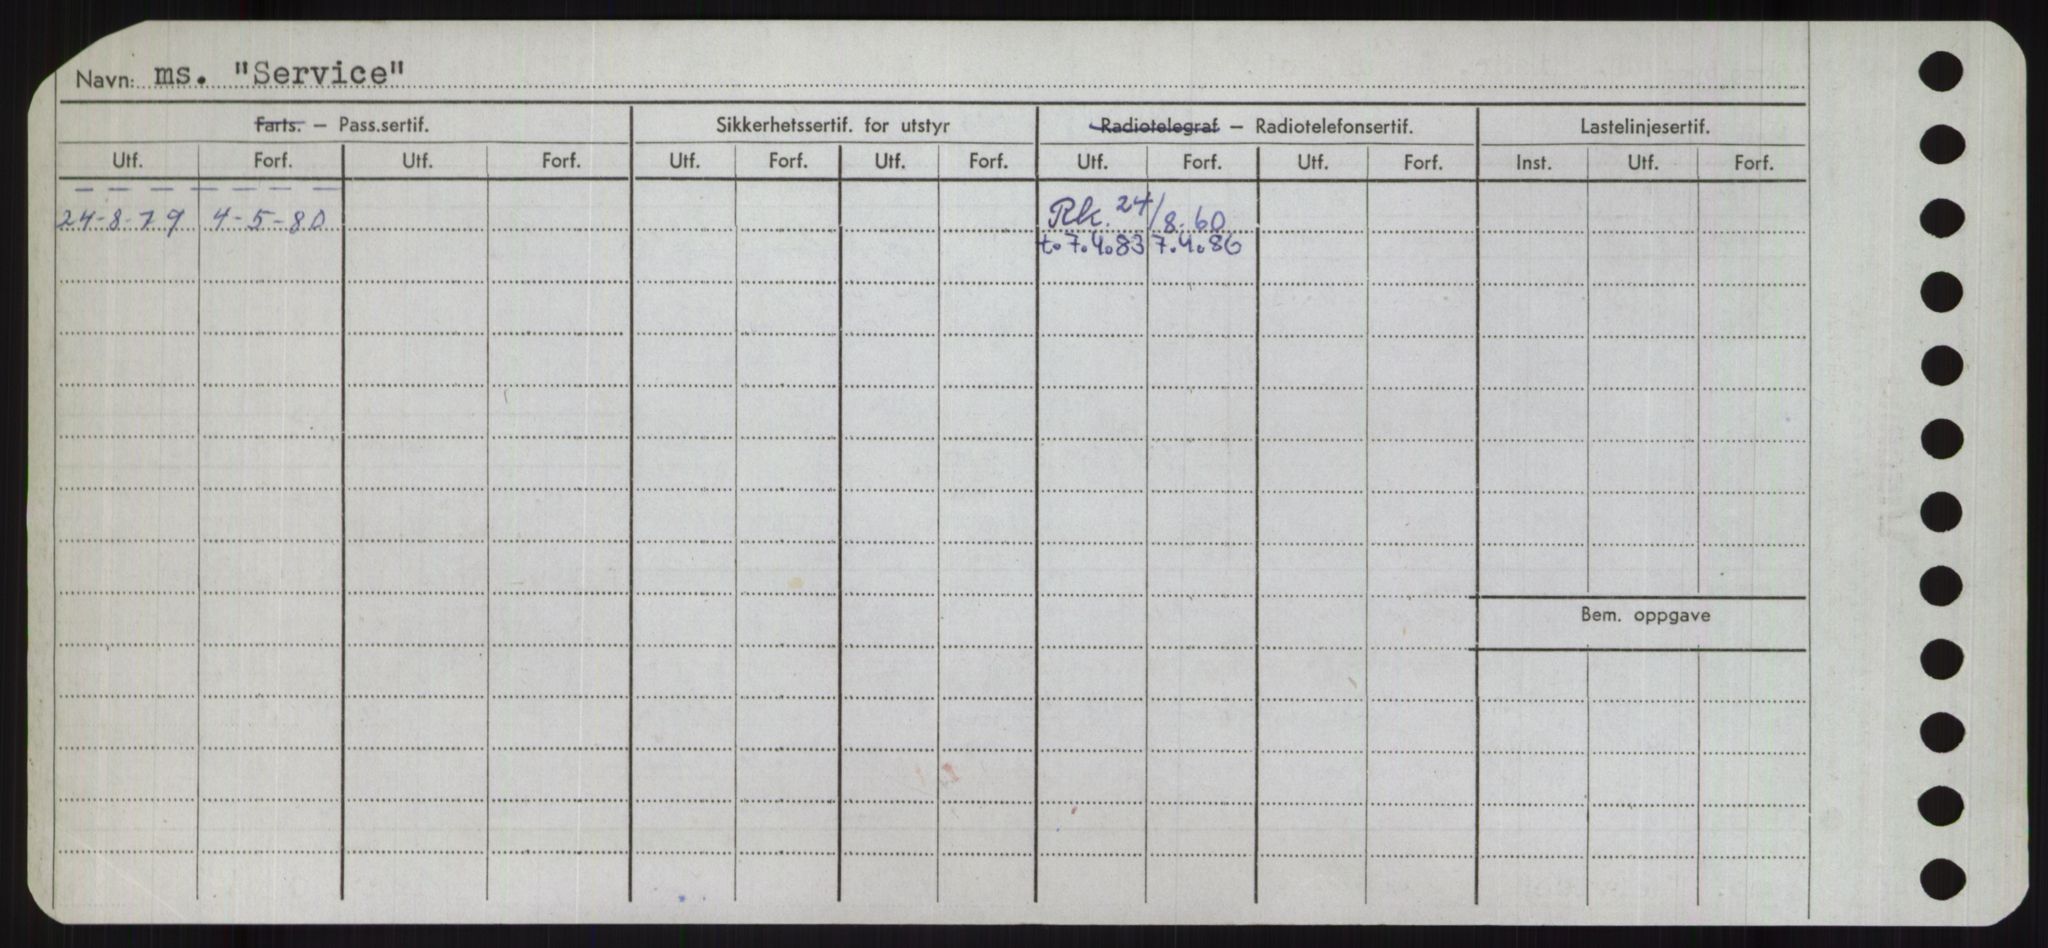 Navn: ms. "Service"
Farts. – Pass.sertif. Sikkerhetssertif. for utstyr Radiotelegraf – Radiotelefonsertif. Lastelinjesertif.
Utf. Forf. Utf. Forf. Utf. Forf. Utf. Forf. Utf. Forf. Utf. Forf. Inst. Utf. Forf.
24-8-79 4-5-80 Rk. 24/8.60
t.7.4.83 7.4.86
Bem. oppgave